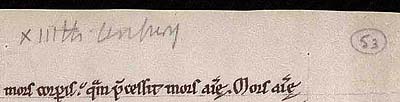 xiiith century
53
mors corp̄is. qm̄ p̄cessit mors aīe. Mors aīe